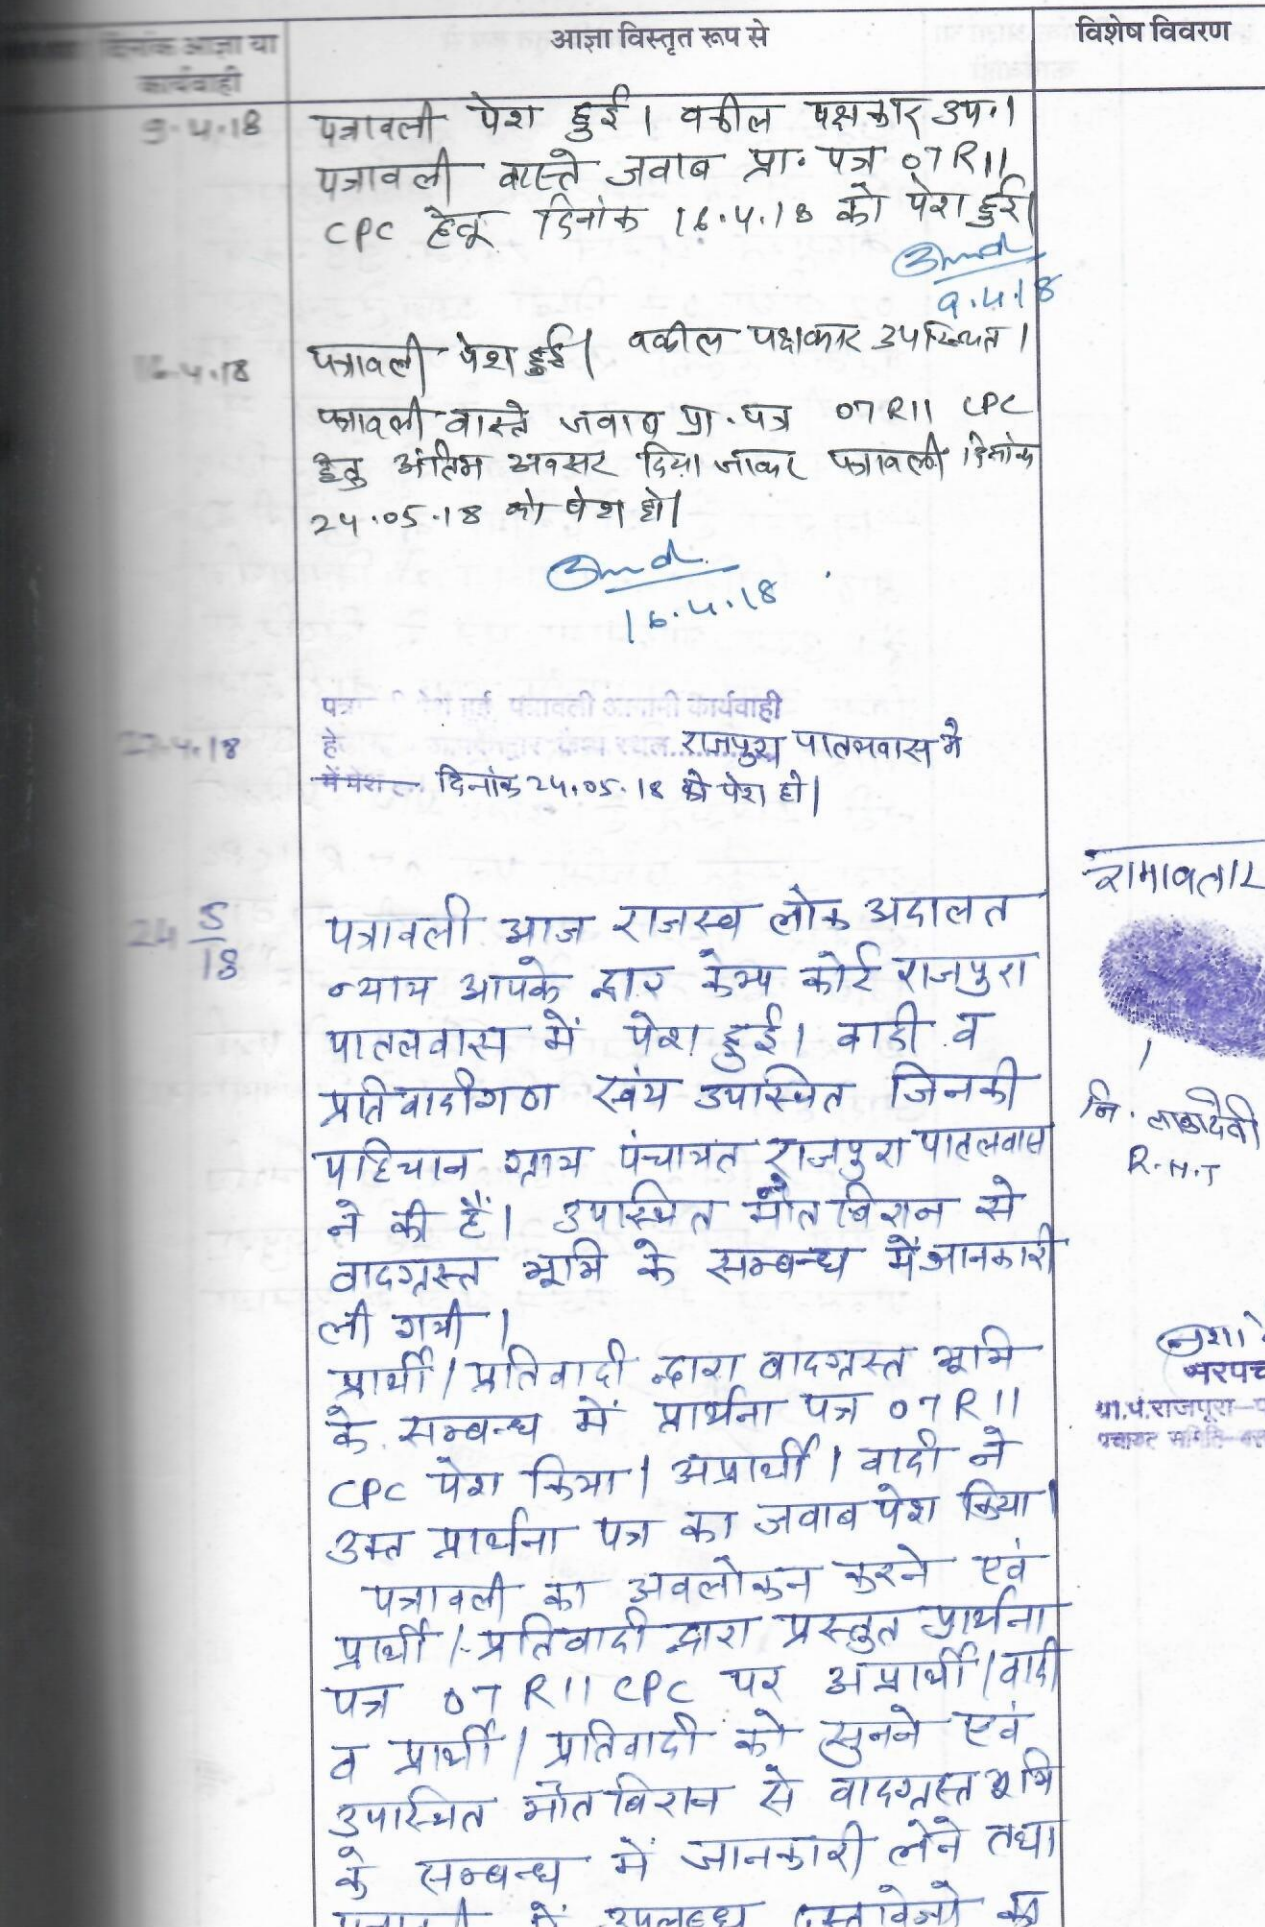 दिनांक आज्ञा या कार्यवाही
आज्ञा विस्तृत रूप से
विशेष विवरण
9.4.18
पत्रावली पेश हुई। वकील पक्षकार उप.।
पत्रावली वास्ते जवाब प्रा. पत्र 07 R 11
CPC हेतू दिनांक 16.4.18 को पेश हुई।
9.4.18
16.4.18
पत्रावली पेश हुई। वकील पक्षकार उपस्थित।
पत्रावली वास्ते जवाब प्रा. पत्र 07 R 11 CPC
हेतु अंतिम अवसर दिया जाकर पत्रावली दिनांक
24.05.18 को पेश हो।
16.4.18
27.4.18
पेश हुई, पत्रावली आगामी कार्यवाही
राजपुरा पातलवास मे
दिनांक 24.05.18 को पेश हो।
24 5/18
पत्रावली आज राजस्व लोक अदालत
न्याय आपके द्वार केम्प कोर्ट राजपुरा
पातलवास में पेश हुई। वादी व
प्रतिवादीगण स्वंय उपस्थित जिनकी
पहिचान ग्राम पंचायत राजपुरा पातलवास
ने की हैं। उपस्थित मौतबिरान से
वादग्रस्त भूमि के सम्बन्ध में जानकारी
ली गयी।
प्रार्थी/प्रतिवादी द्वारा वादग्रस्त भूमि
के सम्बन्ध में प्रार्थना पत्र 07 R 11
CPC पेश किया। अप्रार्थी/वादी ने
उक्त प्रार्थना पत्र का जवाब पेश किया।
पत्रावली का अवलोकन करने एवं
प्रार्थी/प्रतिवादी द्वारा प्रस्तुत प्रार्थना
पत्र 07 R 11 CPC पर अप्रार्थी/वादी
व प्रार्थी/प्रतिवादी को सुनने एवं
उपस्थित मौतबिरान से वादग्रस्त भूमि
के सम्बन्ध में जानकारी लेने तथा
में उपलब्ध दस्तावेजो का
रामावतार
नि. लाडादेवी
R.H.T
ग्रा.पं.राजपुरा
पंचायत समिति